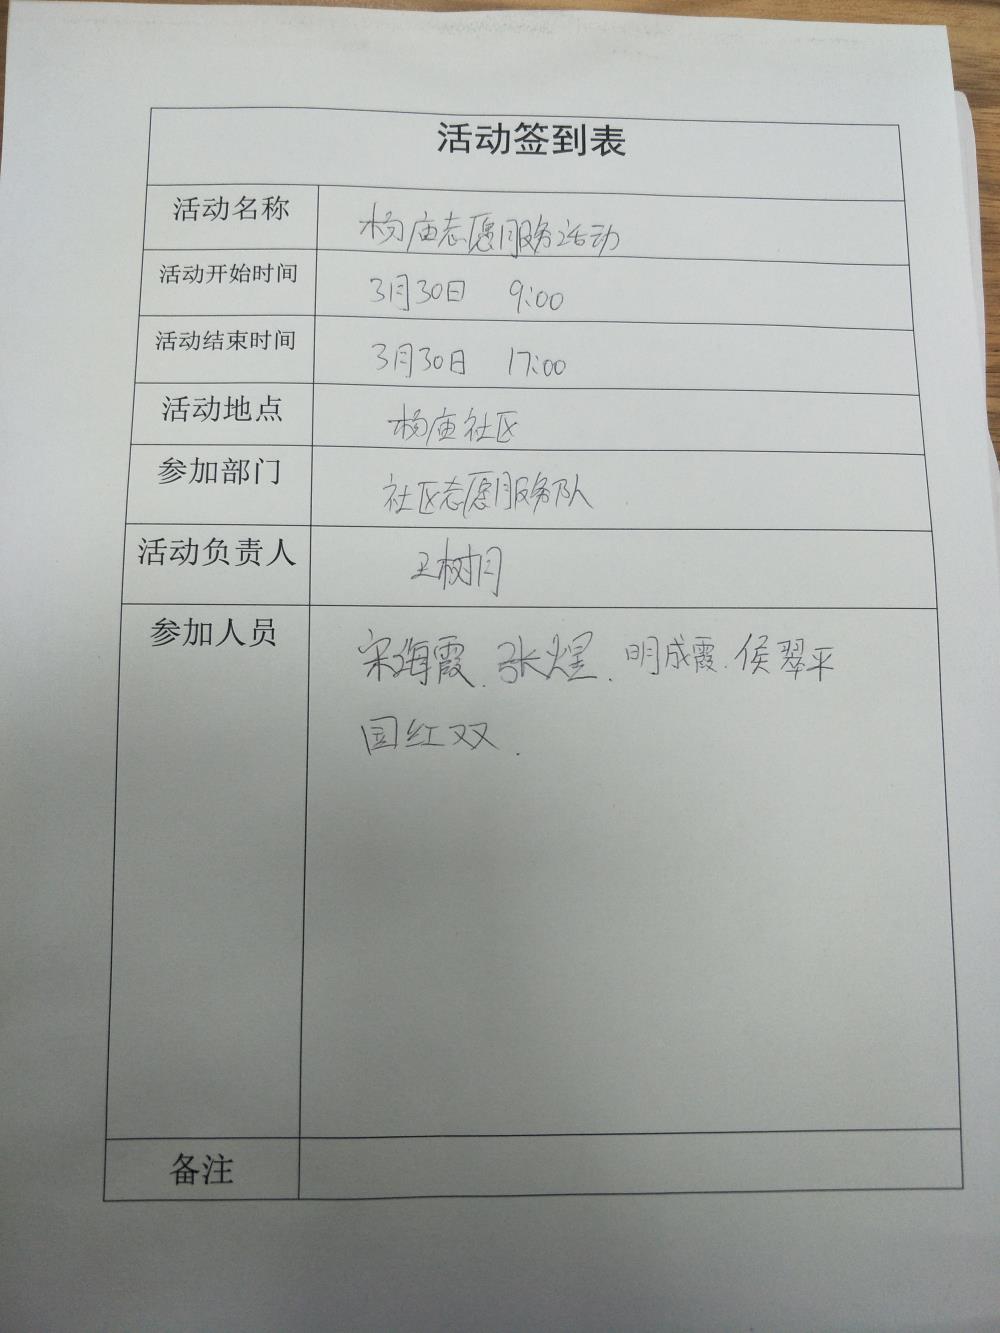 活动签到表
活动名称 杨庙志愿服务活动
活动开始时间 3月30日 9:00
活动结束时间 3月30日 17:00
活动地点 杨庙社区
参加部门 社区志愿服务队
活动负责人 王树月
参加人员 宋海霞、张煜、明成霞、侯翠平
国红双、
备注